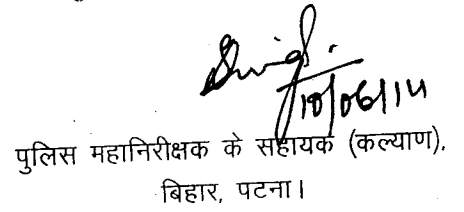 10/06/14
पुलिस महानिरीक्षक के सहायक (कल्याण),
बिहार, पटना।